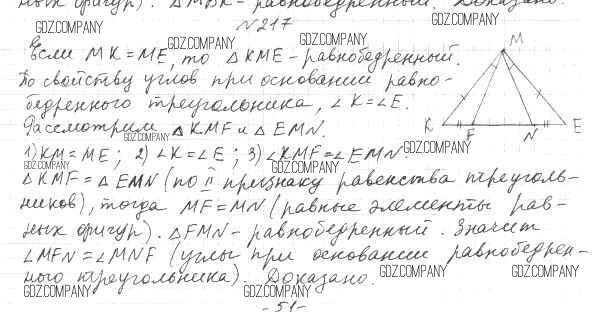 ных фигур). ΔMBK - равнобедренный. Доказано.
N 217
GDZ.COMPANY GDZ.COMPANY GDZ.COMPANY
Если MK = ME, то ΔKME - равнобедренный.
GDZ.COMPANY GDZ.COMPANY
По свойству углов при основании равно-
бедренного треугольника, ∠K = ∠E.
Рассмотрим ΔKMF и ΔEMN.
GDZ.COMPANY GDZ.COMPANY GDZ.COMPANY
1) KM = ME; 2) ∠K = ∠E; 3) ∠KMF = ∠EMN.
GDZ.COMPANY GDZ.COMPANY GDZ.COMPANY
ΔKMF = ΔEMN (по II признаку равенства треуголь-
ников), тогда MF = MN (равные элементы рав-
ных фигур). ΔFMN - равнобедренный. Значит
∠MFN = ∠MNF (углы при основании равнобедрен-
ного треугольника). Доказано.
GDZ.COMPANY GDZ.COMPANY
GDZ.COMPANY GDZ.COMPANY
- 51 -
M
K F N E